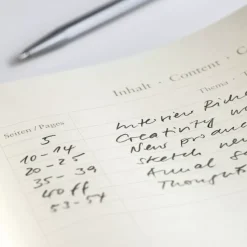 Inhalt · Content ·
Seiten / Pages
Thema
5 Interview Rich
10-14 Creativity
20-25 New produ
35-39 Sketch new
40 ff Annual Sa
53-54 Thoughts